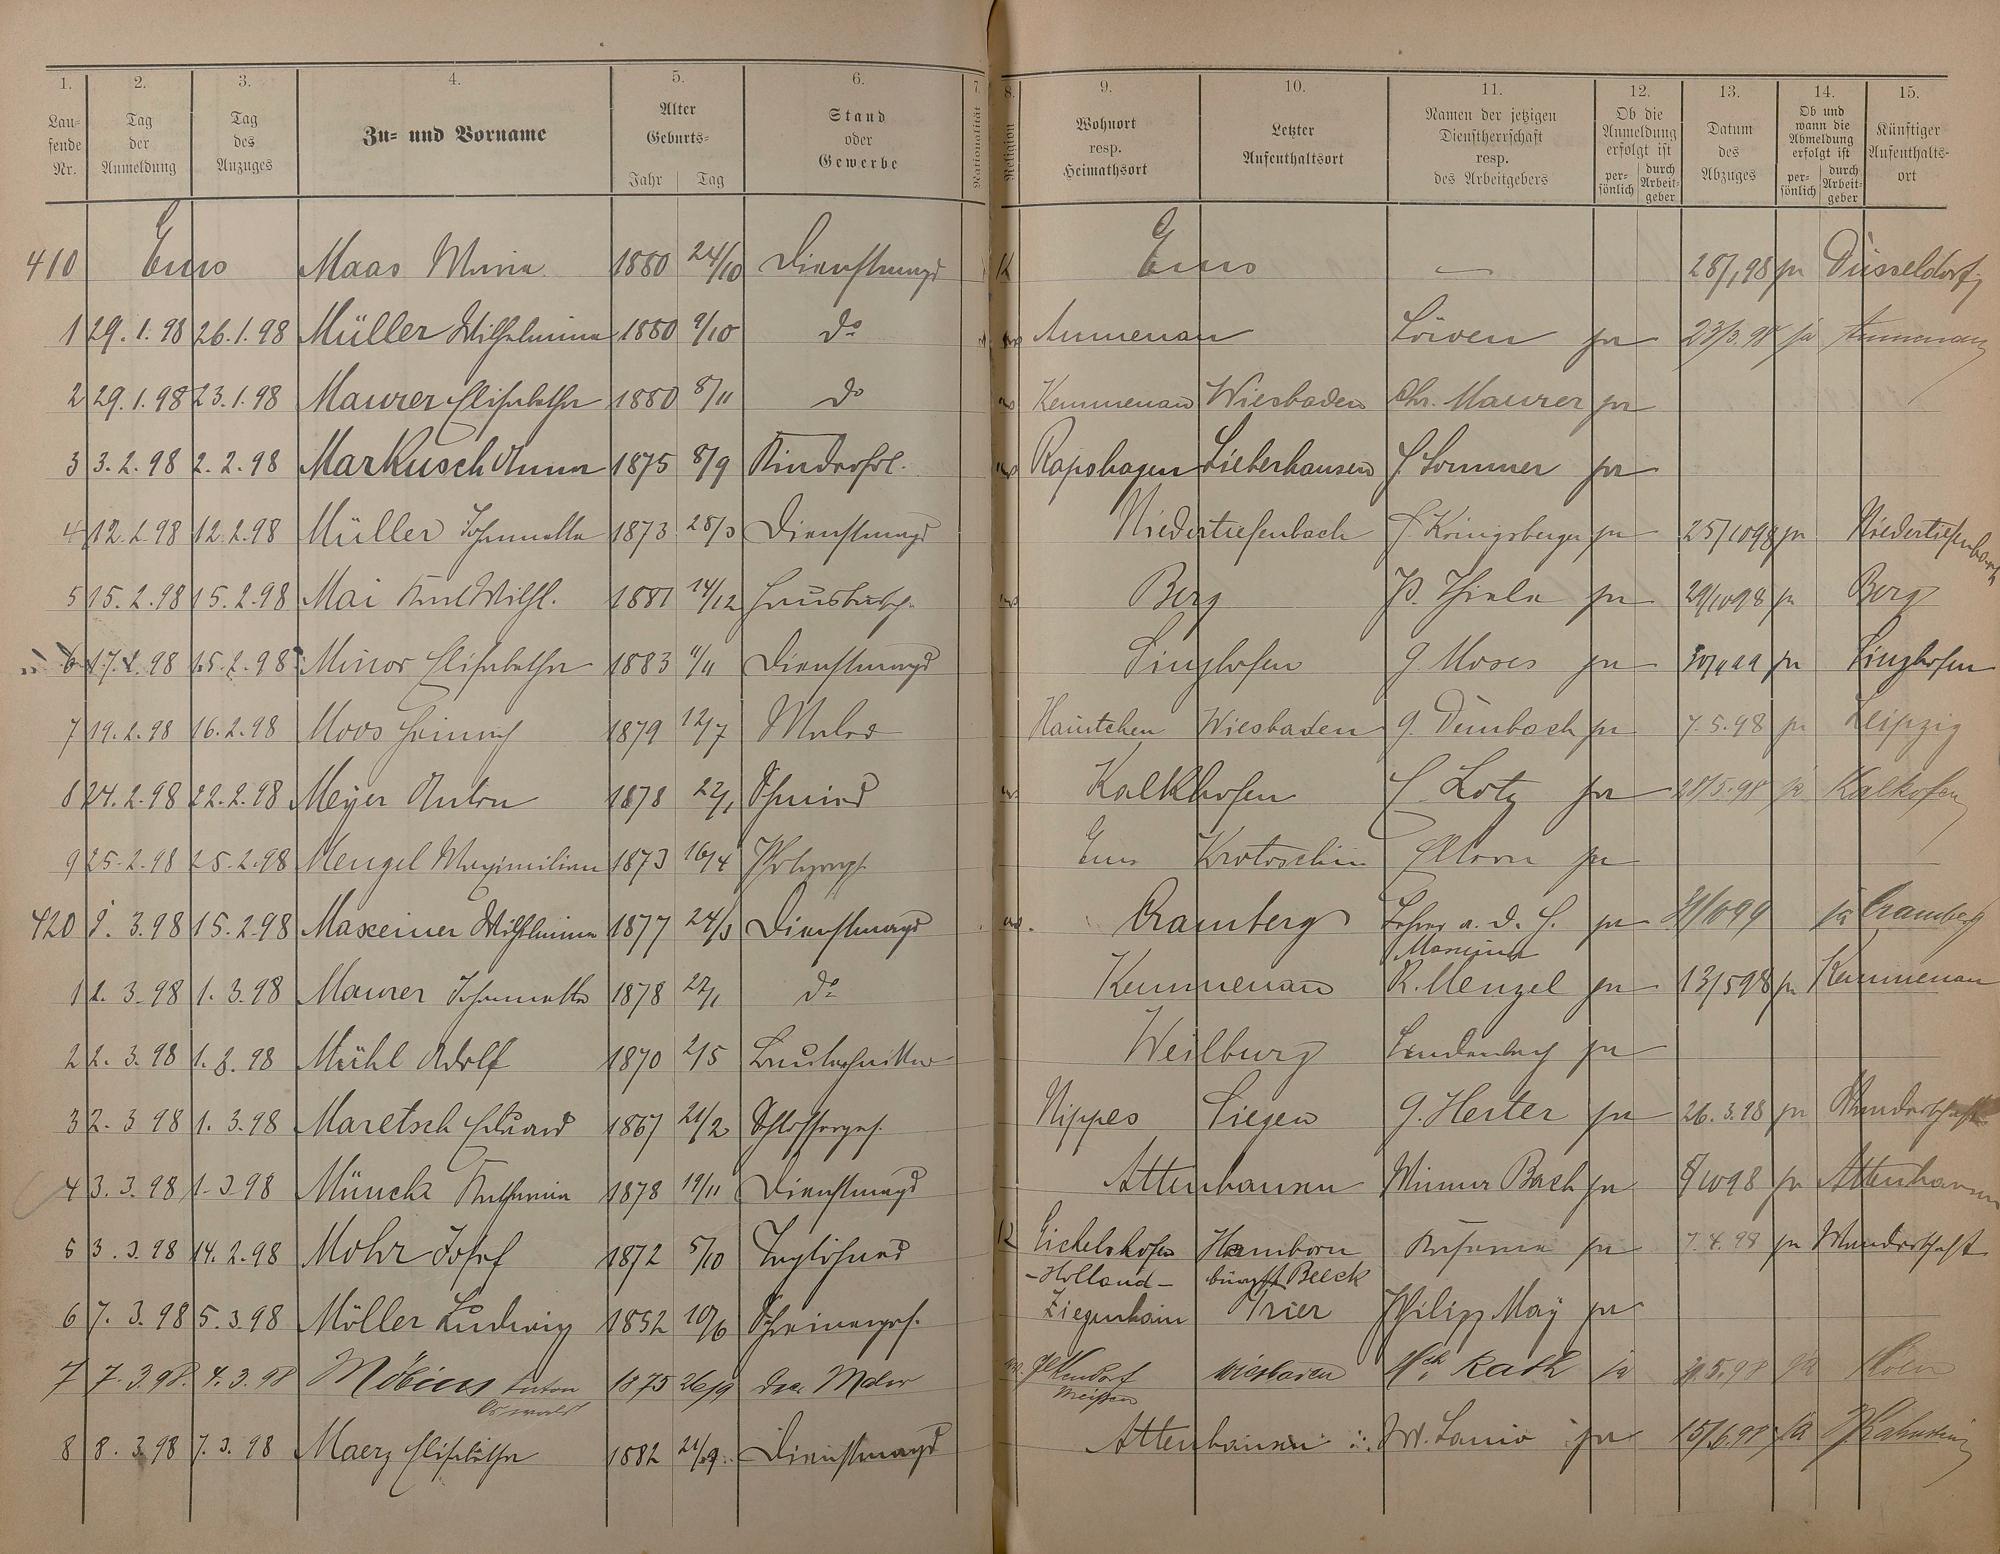 1. 2. 3. 4. 5. 6. 7. 8. 9. 10. 11. 12. 13. 14. 15.
Laufende Nr. Tag der Anmeldung Tag des Anzuges Zu- und Vorname Alter Geburts- Jahr Tag Stand oder Gewerbe Nationalität Religion Wohnort resp. Heimathsort Letzter Aufenthaltsort Namen der jetzigen Dienstherrschaft resp. des Arbeitgebers Ob die Anmeldung erfolgt ist persönlich durch Arbeitgeber Datum des Abzuges Ob und wann die Abmeldung erfolgt ist persönlich durch Arbeitgeber Künftiger Aufenthaltsort
410 Ems Maas Maria 1880 24/10 Dienstmagd K Ems — 28/1 98 ja Düsseldorf
1 29. 1. 98 26. 1. 98 Müller Wilhelmina 1880 9/10 do Aumenau Löwen ja 23/3. 98 ja Aumenau
2 29. 1. 98 23. 1. 98 Maurer Elisabetha 1880 8/11 do Kemmenau Wiesbaden Chr. Maurer ja
3 3. 2. 98 2. 2. 98 Markusch Anna 1875 8/9 Kinderfrl. Rapshagen Lieberhausen Sommer ja
4 12. 2. 98 12. 2. 98 Müller Johannette 1873 28/3 Dienstmagd Niedertiefenbach Königsberger ja 25/10 98 ja Niedertiefenbach
5 15. 2. 98 15. 2. 98 Mai Karl Wilh. 1881 14/12 Hausbursch. Berg P. Thiele ja 29/10 98 ja Berg
6 17. 2. 98 15. 2. 98 Minor Elisabetha 1883 11/11 Dienstmagd Singhofen G. Moses ja ja Singhofen
7 19. 2. 98 16. 2. 98 Moos Heinrich 1879 12/7 Maler Haintchen Wiesbaden G. Dümbach ja 7. 5. 98 ja Leipzig
8 24. 2. 98 22. 2. 98 Meyer Anton 1878 22/1 Schmied Kalkhofen Lotz ja 28/5. 98 ja Kalkofen
9 25. 2. 98 25. 2. 98 Mengel Maximilian 1873 16/4 Ems Krotoschin ja
420 2. 3. 98 15. 2. 98 Maxeiner Wilhelmina 1877 24/3 Dienstmagd Cramberg Lehrer a. d. H. ja ja Cramberg
1 2. 3. 98 1. 3. 98 Maurer Johannette 1878 22/1 do Kemmenau R. Menzel ja 13/5 98 ja Kemmenau
2 2. 3. 98 1. 3. 98 Mühl Adolf 1870 2/5 Bautechniker Weilburg ja
3 2. 3 98 1. 3. 98 Maretsch Eduard 1867 21/2 Schlosserges. Nippes Siegen G. Herter ja 26. 3. 98 ja Wanderschaft
4 3. 3. 98 1. 3 98 Münch Katharina 1878 19/11 Dienstmagd Attenhausen Bach ja 8/10 98 ja Attenhausen
5 3. 3. 98 14. 2. 98 Mohr Josef 1872 5/10 Taglöhner K Eichelshofen Hamborn ja 7. 4. 98 ja Wanderschaft
- Holland - Beeck
6 7. 3. 98 5. 3. 98 Möller Ludwig 1852 10/6 Schreinerges. Ziegenhain Trier Philipp May ja
7 7. 3. 98. 4. 3. 98 Möbius Anton 1875 26/9 Maler Wiesbaden Rath ja 5. 98 ja
Oswald Meißen
8 8. 3. 98 7. 3. 98 Maerz Elisabetha 1882 21/9. Dienstmagd Attenhausen W. Lanio ja 15/6 98 ja